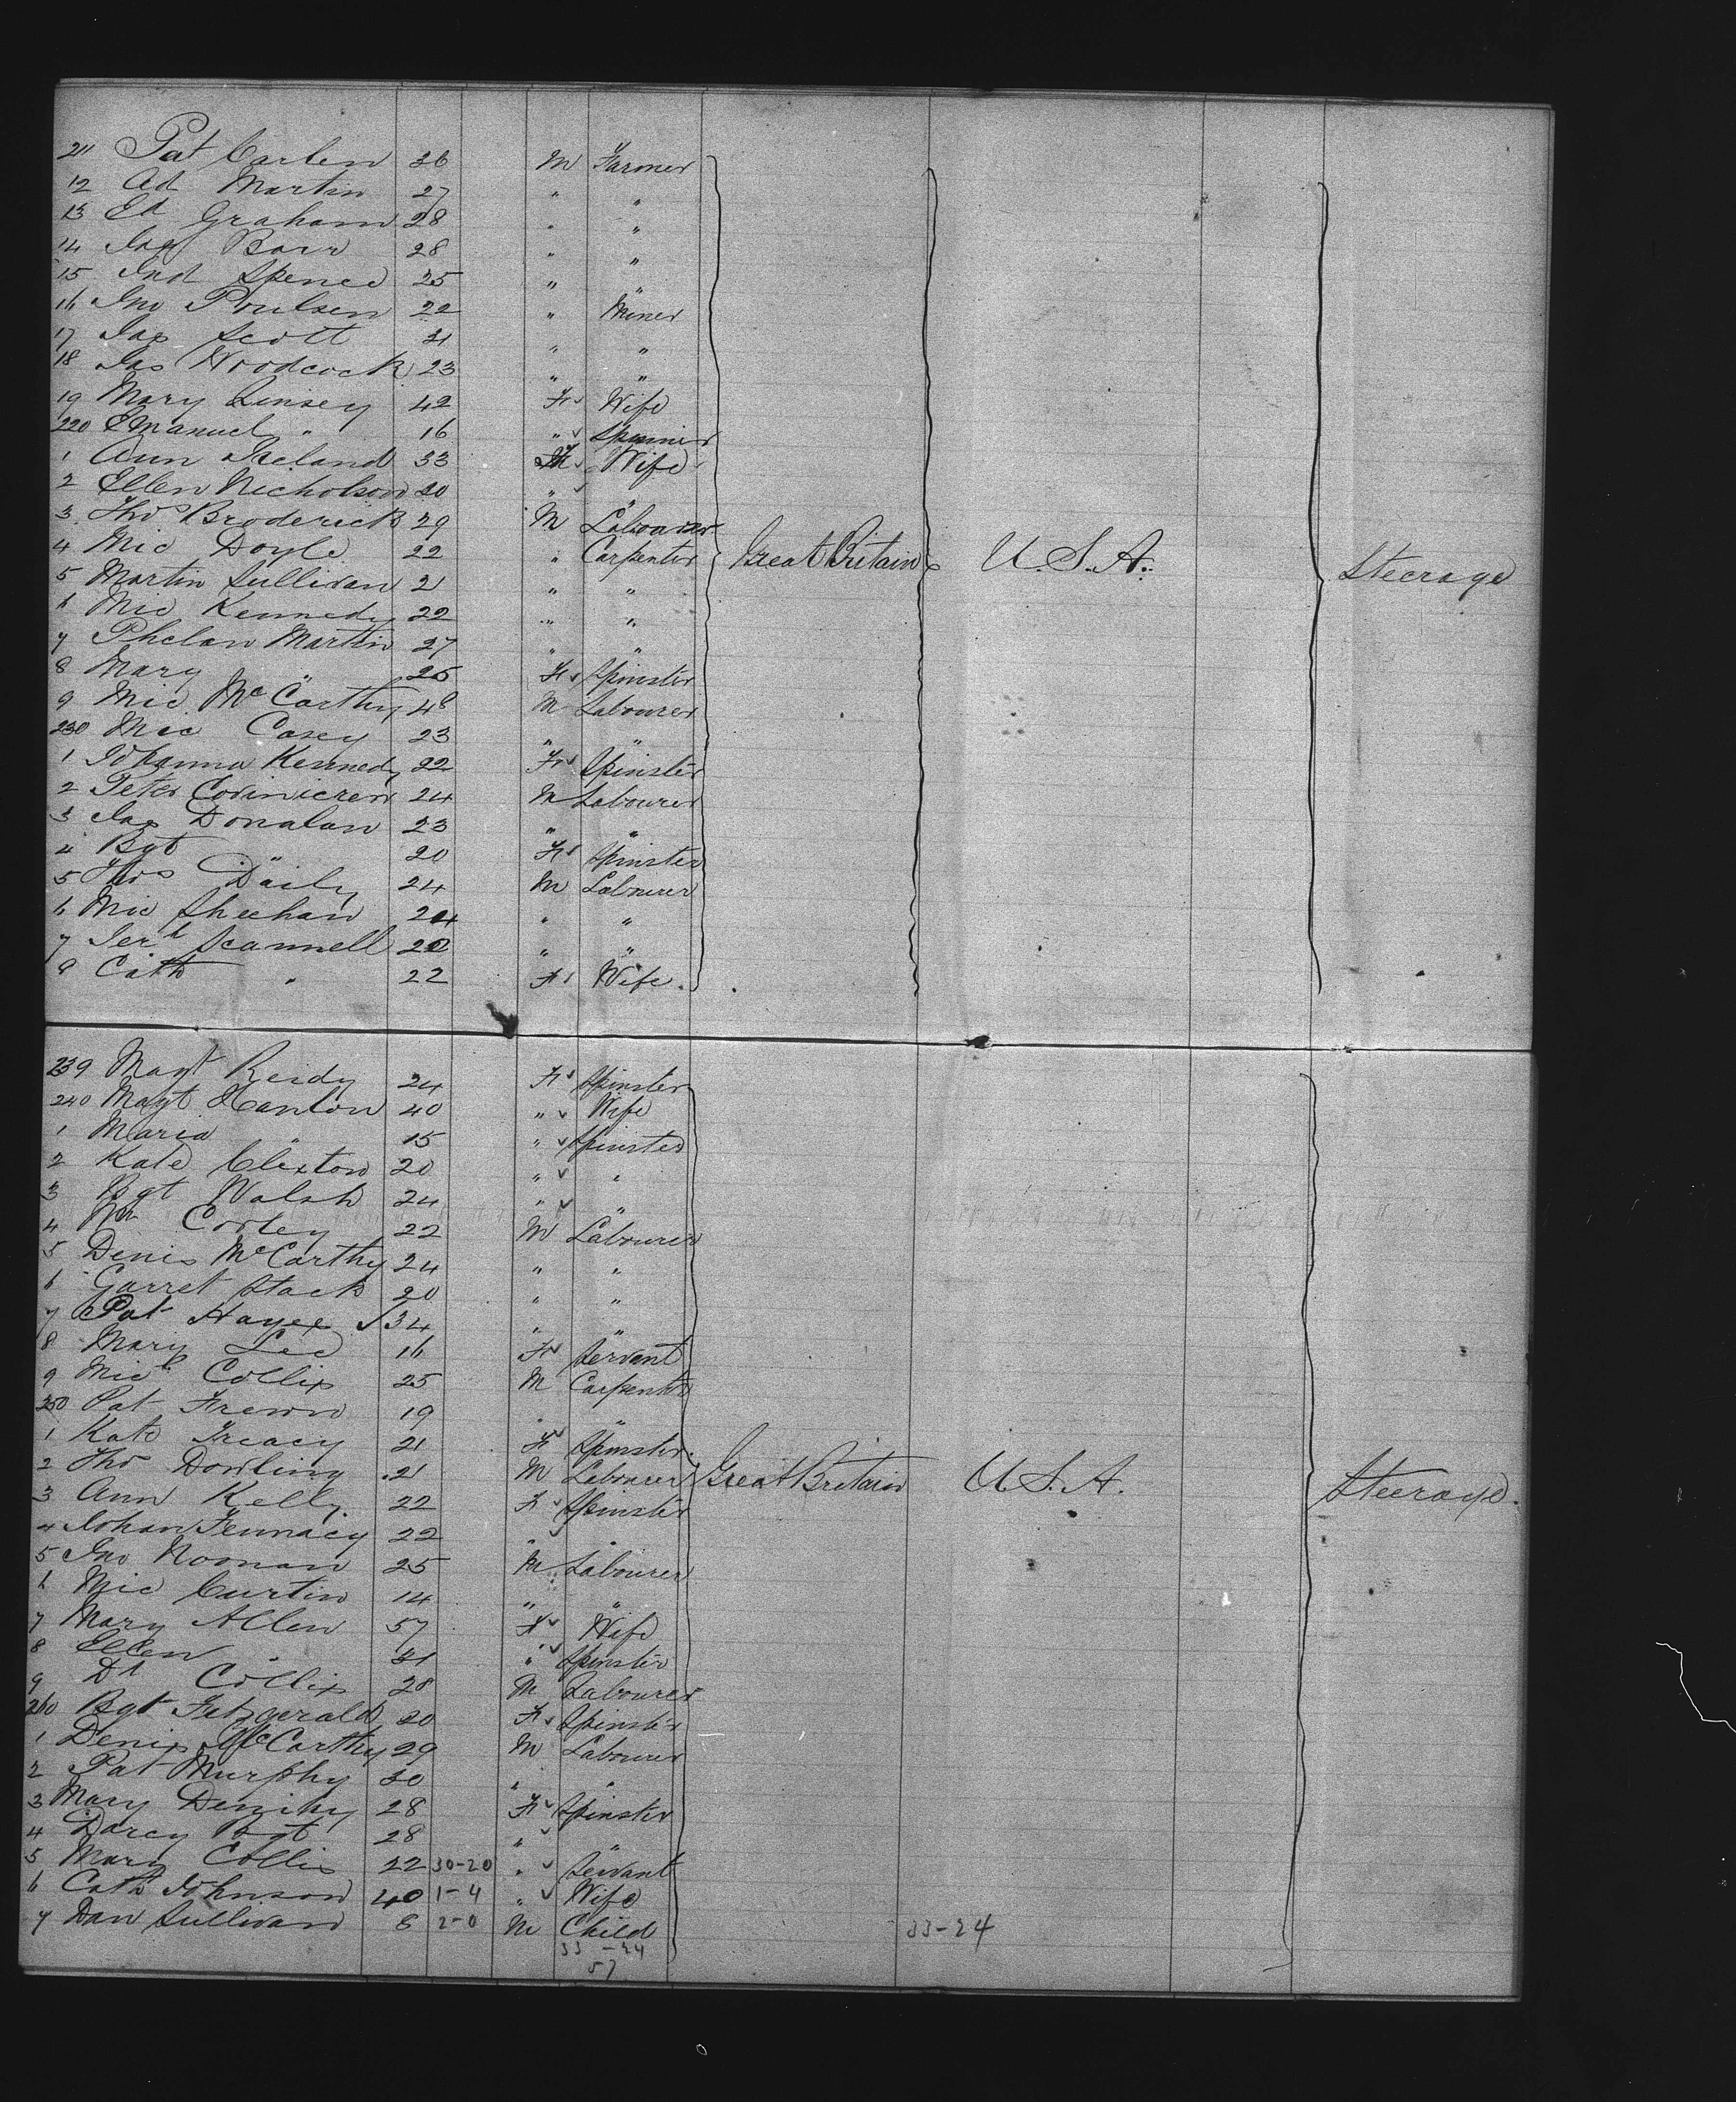 211 Pat Carlen 36 M Farmer
12 Ad Martin 27 " "
13 Ed Graham 28 " "
14 Jas Barr 28 " "
15 And Spence 25 " "
16 Jno Poulsen 22 " Miner
17 Jas Scott 21 " "
18 Jas Woodcock 23 " "
19 Mary Linsey 42 F Wife
220 Emanuel " 16 "
1 Ann Ireland 33 Wife
2 Ellen Nicholson 20 " "
3 Thos Broderick 29 M Labourer
4 Mic Doyle 22 " Carpenter Great Britain U.S.A. Steerage
5 Martin Sullivan 21 " "
6 Mic Kennedy 22 " "
7 Phelan Martin 27 " "
8 Mary " 25 F Spinster
9 Mic McCarthy 48 M Labourer
230 Mic Casey 23 " "
1 Johanna Kennedy 22 F Spinster
2 Peter 24 M Labourer
3 Jas Donalan 23 " "
4 Bgt " 20 F Spinster
5 Thos Daily 24 M Labourer
6 Mic Sheehan 24 " "
7 Jerh Scannell 22 " "
8 Cath " 22 F Wife
239 Magt Reidy 24 F Spinster
240 Magt Hanlon 40 " Wife
1 Maria " 15 " Spinster
2 Kate Clexton 20 " "
3 Bgt Walsh 24 " "
4 Wm Corley 22 M Labourer
5 Denis McCarthy 24 " "
6 Garret Stack 20 " "
7 Pat Hayes 34 " "
8 Mary Lee 16 F Servant
9 Mic Collis 25 M Carpenter
250 Pat Frewn 19 " "
1 Kate Treacy 21 F Spinster
2 Thos Dowling 21 M Labourer Great Britain U.S.A. Steerage.
3 Ann Kelly 22 F Spinster
4 Johan Fennacy 22 " "
5 Jno Noonan 25 M Labourer
6 Mic Curtin 14 " "
7 Mary Allen 57 F Wife
8 Ellen " 21 " Spinster
9 Dl Collis 28 M Labourer
260 Bgt Fitzgerald 20 F Spinster
1 Denis McCarthy 29 M Labourer
2 Pat Murphy 30 " "
3 Mary 28 F Spinster
4 Darcy Bgt 28 " "
5 Mary Collis 22 30-20 " Servant
6 Cath Johnson 40 1-4 " Wife
7 Dan Sullivan 8 2-0 M Child 33-24
33-24
57